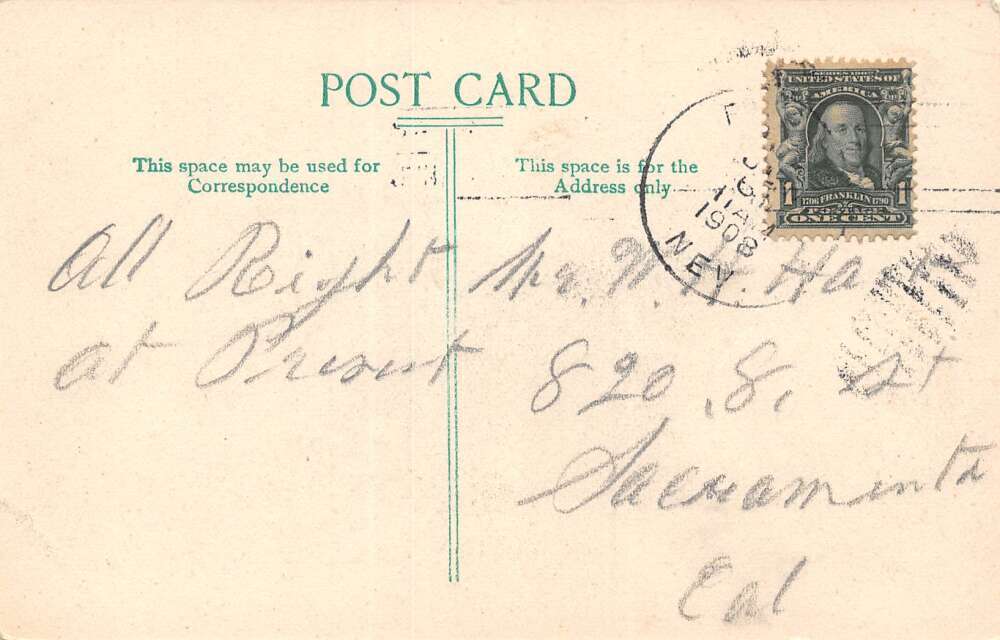 POST CARD
This space may be used for
Correspondence
This space is for the
Address only
SERIES 1902
UNITED STATES OF
AMERICA
1 1
1706 FRANKLIN 1790
POSTAGE
ONE CENT
11 AM
1908
NEV
All Right
at Present
Mr. W. H.
820 8, St
Sacramento
Cal